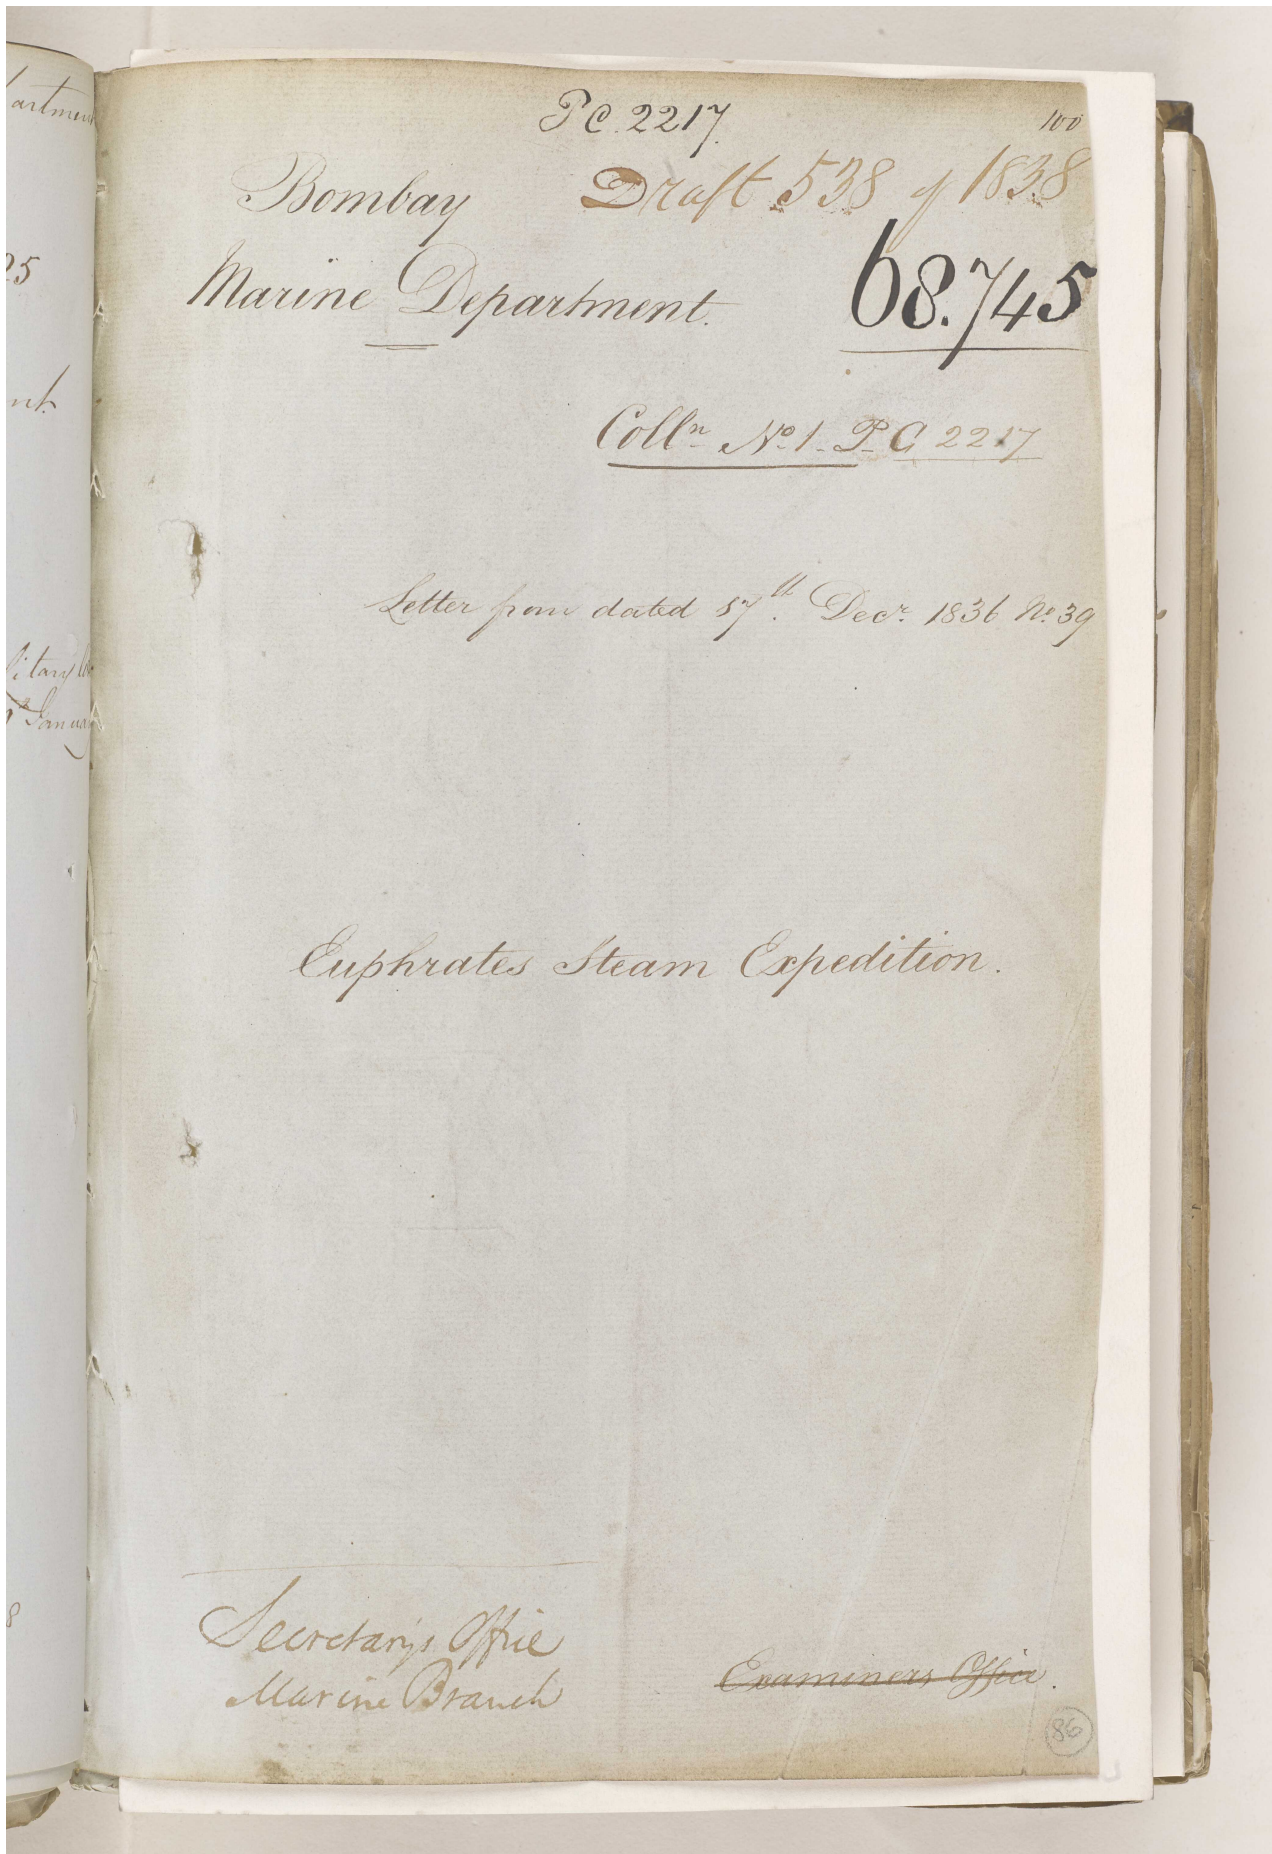 artment
25
nt.
litary
Janua
8
P C. 2217.
100
Bombay Draft 538 of 1838
Marine Department. 68.745
Colln No. 1. P. C 2217
Letter from dated 17th. Decr. 1836 No. 39
Euphrates Steam Expedition.
Secretary's Office
Marine Branch
Examiners Office.
86